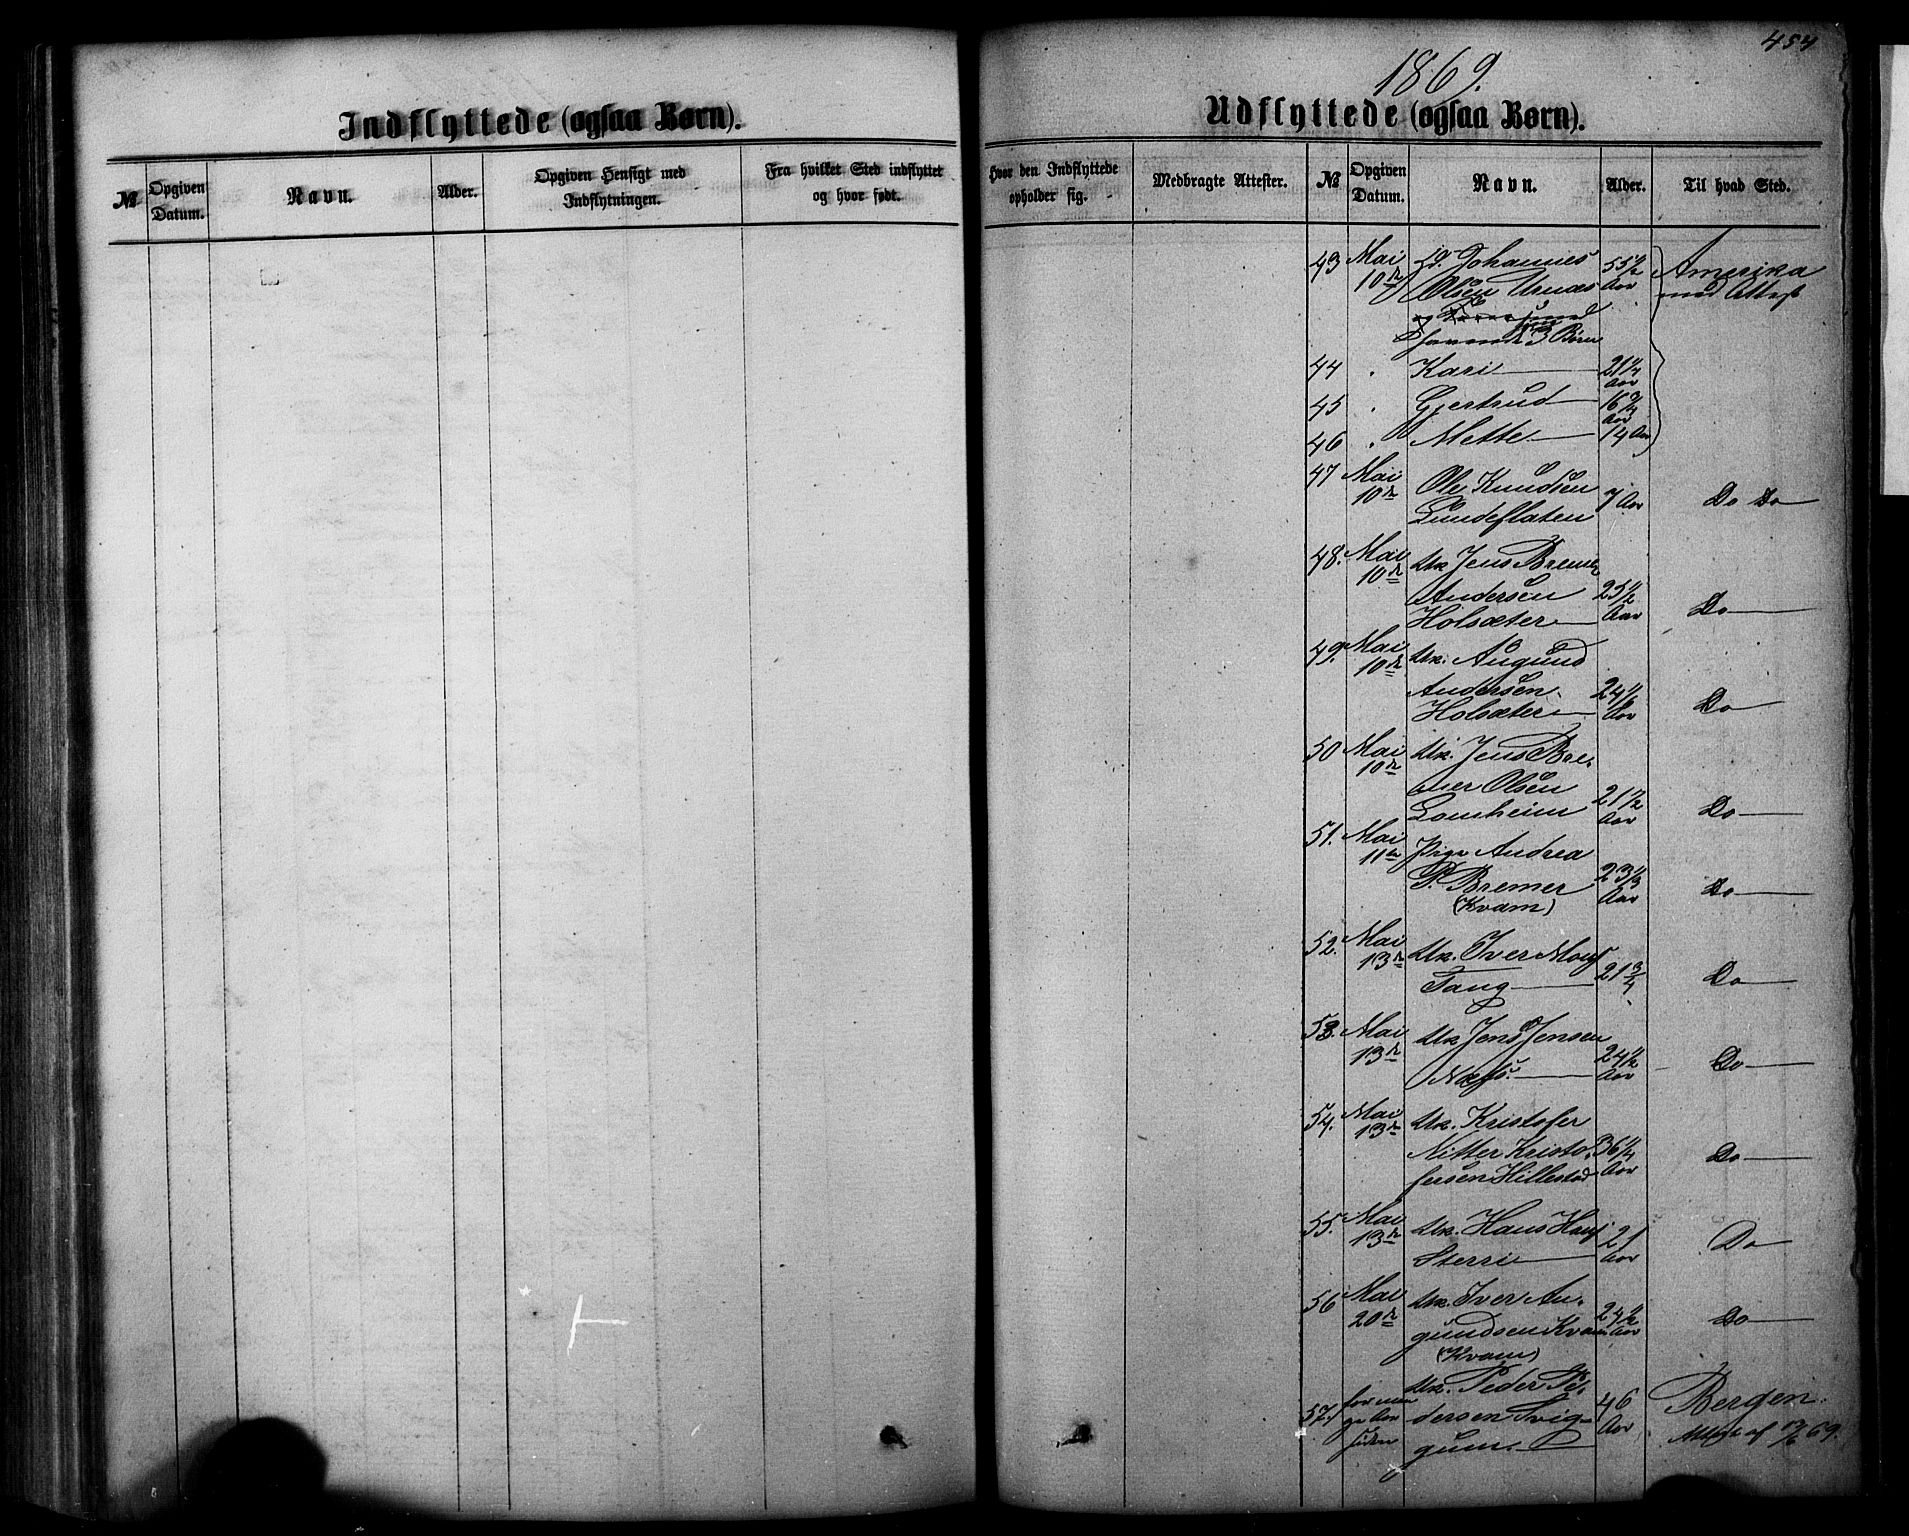 454
1869.
Indflyttede (ogsaa Børn).
Udflyttede (ogsaa Børn).
№ Opgiven Datum. Navn. Alder. Opgiven Hensigt med Indflytningen. Fra hvilket Sted indflyttet og hvor født.
Hvor den Indflyttede opholder sig. Medbragte Attester. № Opgiven Datum. Navn. Alder. Til hvad Sted.
43 Mai Johannes 55½ Amerika
10de Olsen Urnæs Aar med Attest
og
3 Børn
44 " Kari 21¼ Aar
45 " Gjertrud 16¾ Aar
46 " Mette 14 Aar
47 Mai Ole Knudsen
10de Lundeflaten 7 Aar Do Do
48. Mai Uk. Jens Bremer
10de Andersen 25½
Holsæter Aar Do
49. Mai Uk. Augund
10de Andersen 24½
Holsæter Aar Do
50 Mai Uk. Jens Bre-
10de mer Olsen
Lomheim 21½ Aar Do
51. Mai Pige Andrea
11te P. Bremer 23⅓
(Kvam) Aar Do
52. Mai Uk. Iver Mons
13de Tang 21¾ Do
53. Mai Uk Jens Jensen
13de Næss. 24½ Aar Do
54. Mai Uk. Kristofer
13de Nitter Kristo- 36¼
fersen Hillestad Aar Do
55. Mai Uk. Hans Hans
13de Sterri 21 Aar Do
56 Mai Uk. Iver Au-
20de gundsen Kvam 24½ Aar Do
(Kvam)
57. for man- Uk. Peder Pe- 46 Bergen.
ge Aar dersen Svig- Aar
siden gum. Attest af 69.